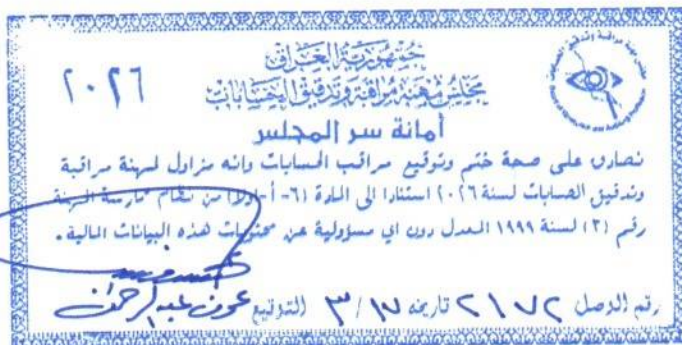 جمهورية العراق
مجلس مهنة مراقبة وتدقيق الحسابات
٢٠٢٦
أمانة سر المجلس
نصادق على صحة ختم وتوقيع مراقب الحسابات وانه مزاول لمهنة مراقبة
وتدقيق الحسابات لسنة ٢٠٢٦ استنادا الى المادة (٦-أ-اولا) من نظام ممارسة المهنة
رقم (٣) لسنة ١٩٩٩ المعدل دون اي مسؤولية عن محتويات هذه البيانات المالية.
رقم الوصل ٢١٧٢ تاريخه ٣/١٧ التوقيع عمر عبد الرحمن